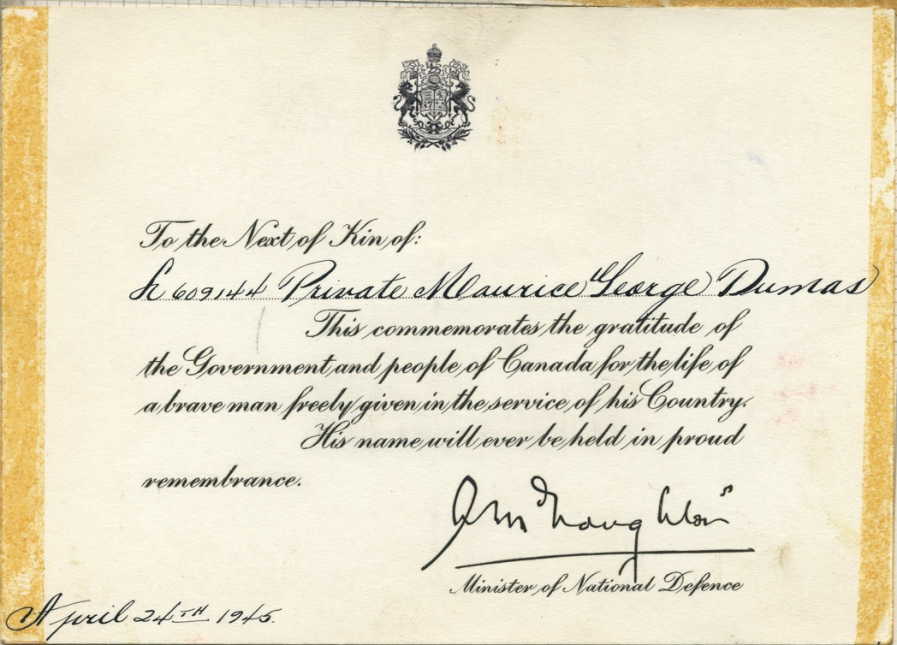 To the Next of Kin of:
609144 Private Maurice George Dumas
This commemorates the gratitude of
the Government and people of Canada for the life of
a brave man freely given in the service of his Country.
His name will ever be held in proud
remembrance.
A McNaughton
Minister of National Defence
April 24TH 1945.